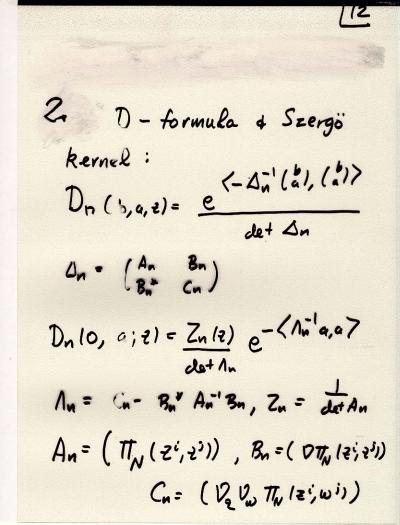 12
2. D-formula & Szergö
kernel:
Dn(b,a,z) = e^{<-Δn^{-1}(b a),(b a)>} / det Δn
Δn = (An Bn
Bn* Cn)
Dn(0, a;z) = Zn(z) / det Λn e^{-<Λn^{-1}a,a>}
Λn = Cn - Bn* An^{-1} Bn, Zn = 1 / det An
An = (ΠN(z^i,z^j)), Bn = (DΠN(z^i,z^j))
Cn = (Dz Dw ΠN(z^i,w^j))